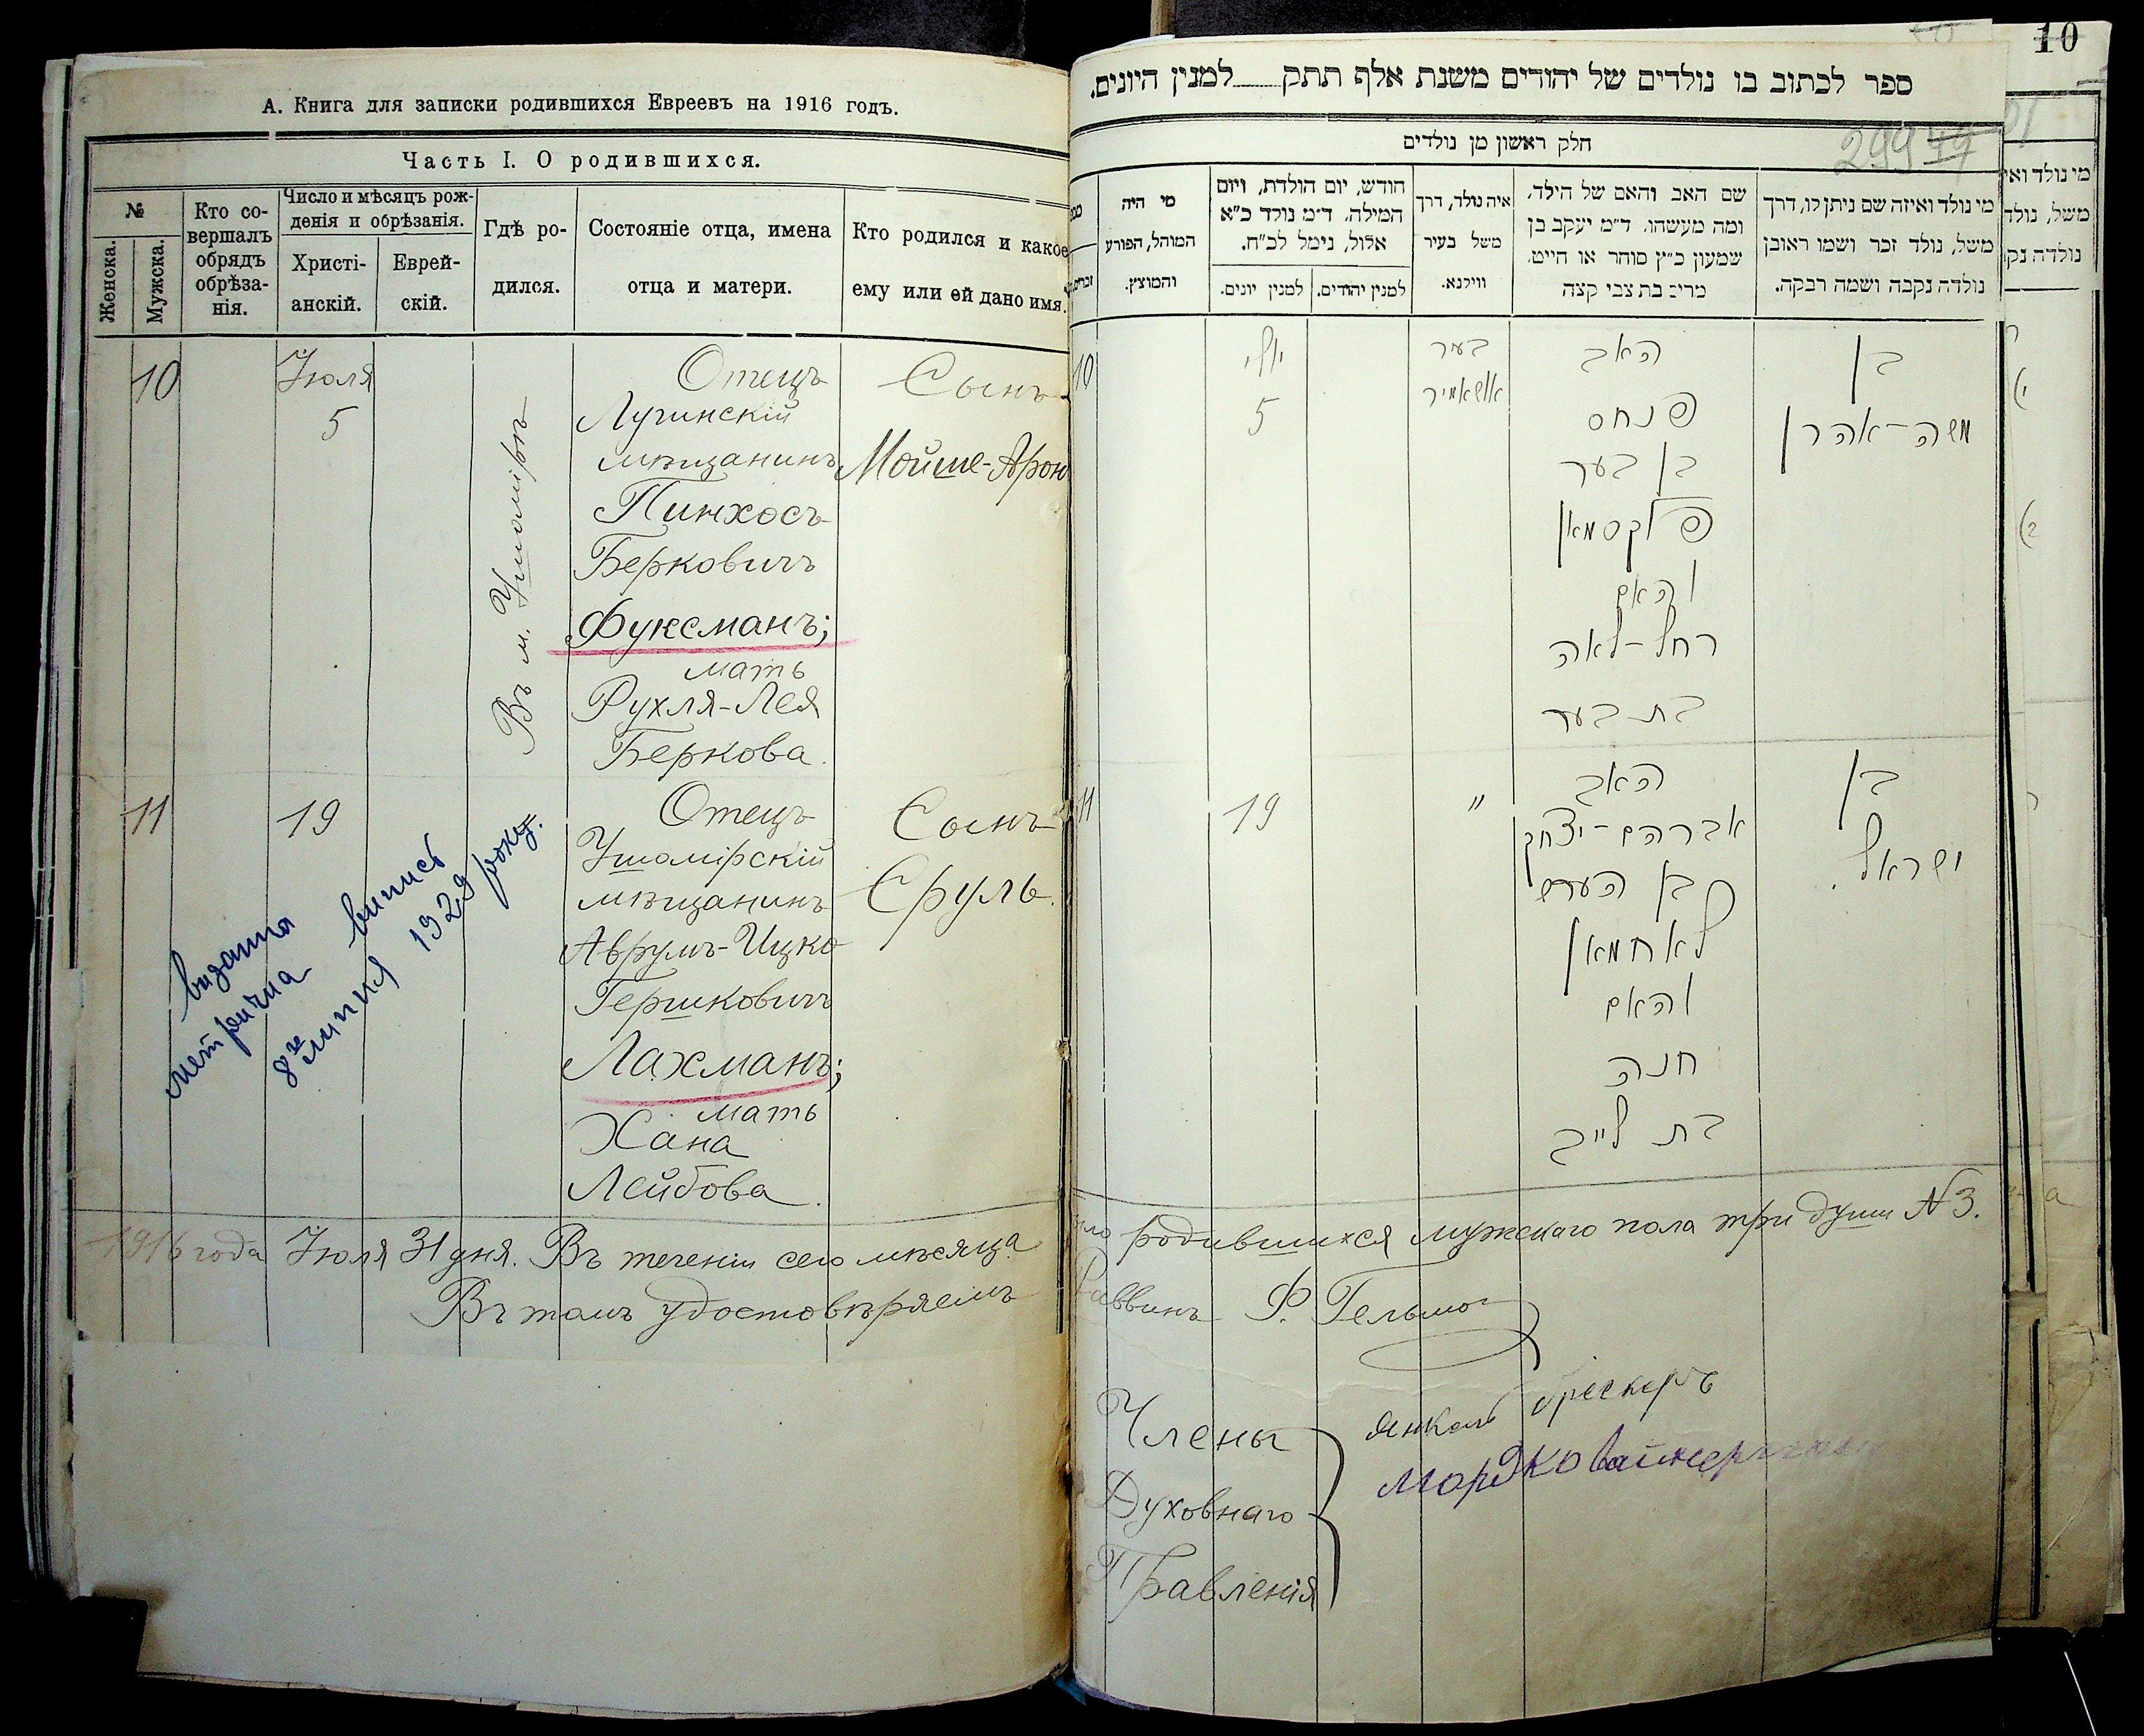 А. Книга для записки родившихся Евреевъ на 1916 годъ.
Часть I. О родившихся.
№
Женска.
Мужска.
Кто со-
вершалъ
обрядъ
обрѣза-
нія.
Число и мѣсяцъ рож-
денія и обрѣзанія.
Христі-
анскій.
Еврей-
скій.
Гдѣ ро-
дился.
Состояніе отца, имена
отца и матери.
Кто родился и какое
ему или ей дано имя.
10
Іюля
5
Въ м. Ушомірѣ
Отецъ
Лугинскій
мѣщанинъ
Пинхосъ
Берковичъ
Фуксманъ;
мать
Рухля-Лея
Беркова.
Сынъ
Мойше-Арон
11
19
Отецъ
Ушомірскій
мѣщанинъ
Аврумъ-Ицко
Гершковичъ
Лахманъ;
мать
Хана
Лейбова.
Сынъ
Сруль.
видана
метрична випись
8го липня 1929 року.
1916 года Іюля 31 дня. Въ теченіи сего мѣсяца
Въ томъ удостовѣряемъ
10
ספר לכתוב בו נולדים של יהודים משנת אלף תתק למנין היונים.
299
חלק ראשון מן נולדים
מי נולד ואיזה שם ניתן לו, דרך
משל, נולד זכר ושמו ראובן
נולדה נקבה ושמה רבקה.
שם האב והאם של הילד,
ומה מעשהו. ד״מ יעקב בן
שמעון כ״ץ סוחר או חייט,
מרים בת צבי קצה
איה נולד, דרך
משל בעיר
ווילנא.
חודש, יום הולדת, ויום
המילה, ד״מ נולד כ״א
אלול, נימל לכ״ח.
למנין יהודים.
למנין יונים.
מי היה
המוהל, הפורע
והמוצץ.
מי נולד ואי
משל, נולד
נולדה נק
בן
משה-אהרן
האב
פנחס
בן בער
פוקסמאן
והאם
רחל-לאה
בת בער
בער
אושאמיר
יולי
5
10
בן
ישראל.
האב
אברהם-יצחק
בן הערש
לאחמאן
והאם
חנה
בת לייב
"
19
11
родившихся мужскаго пола три души №3.
Раввинъ Ф. Гельмо
Члены
Духовнаго
Правленія
Янкель
Мордко